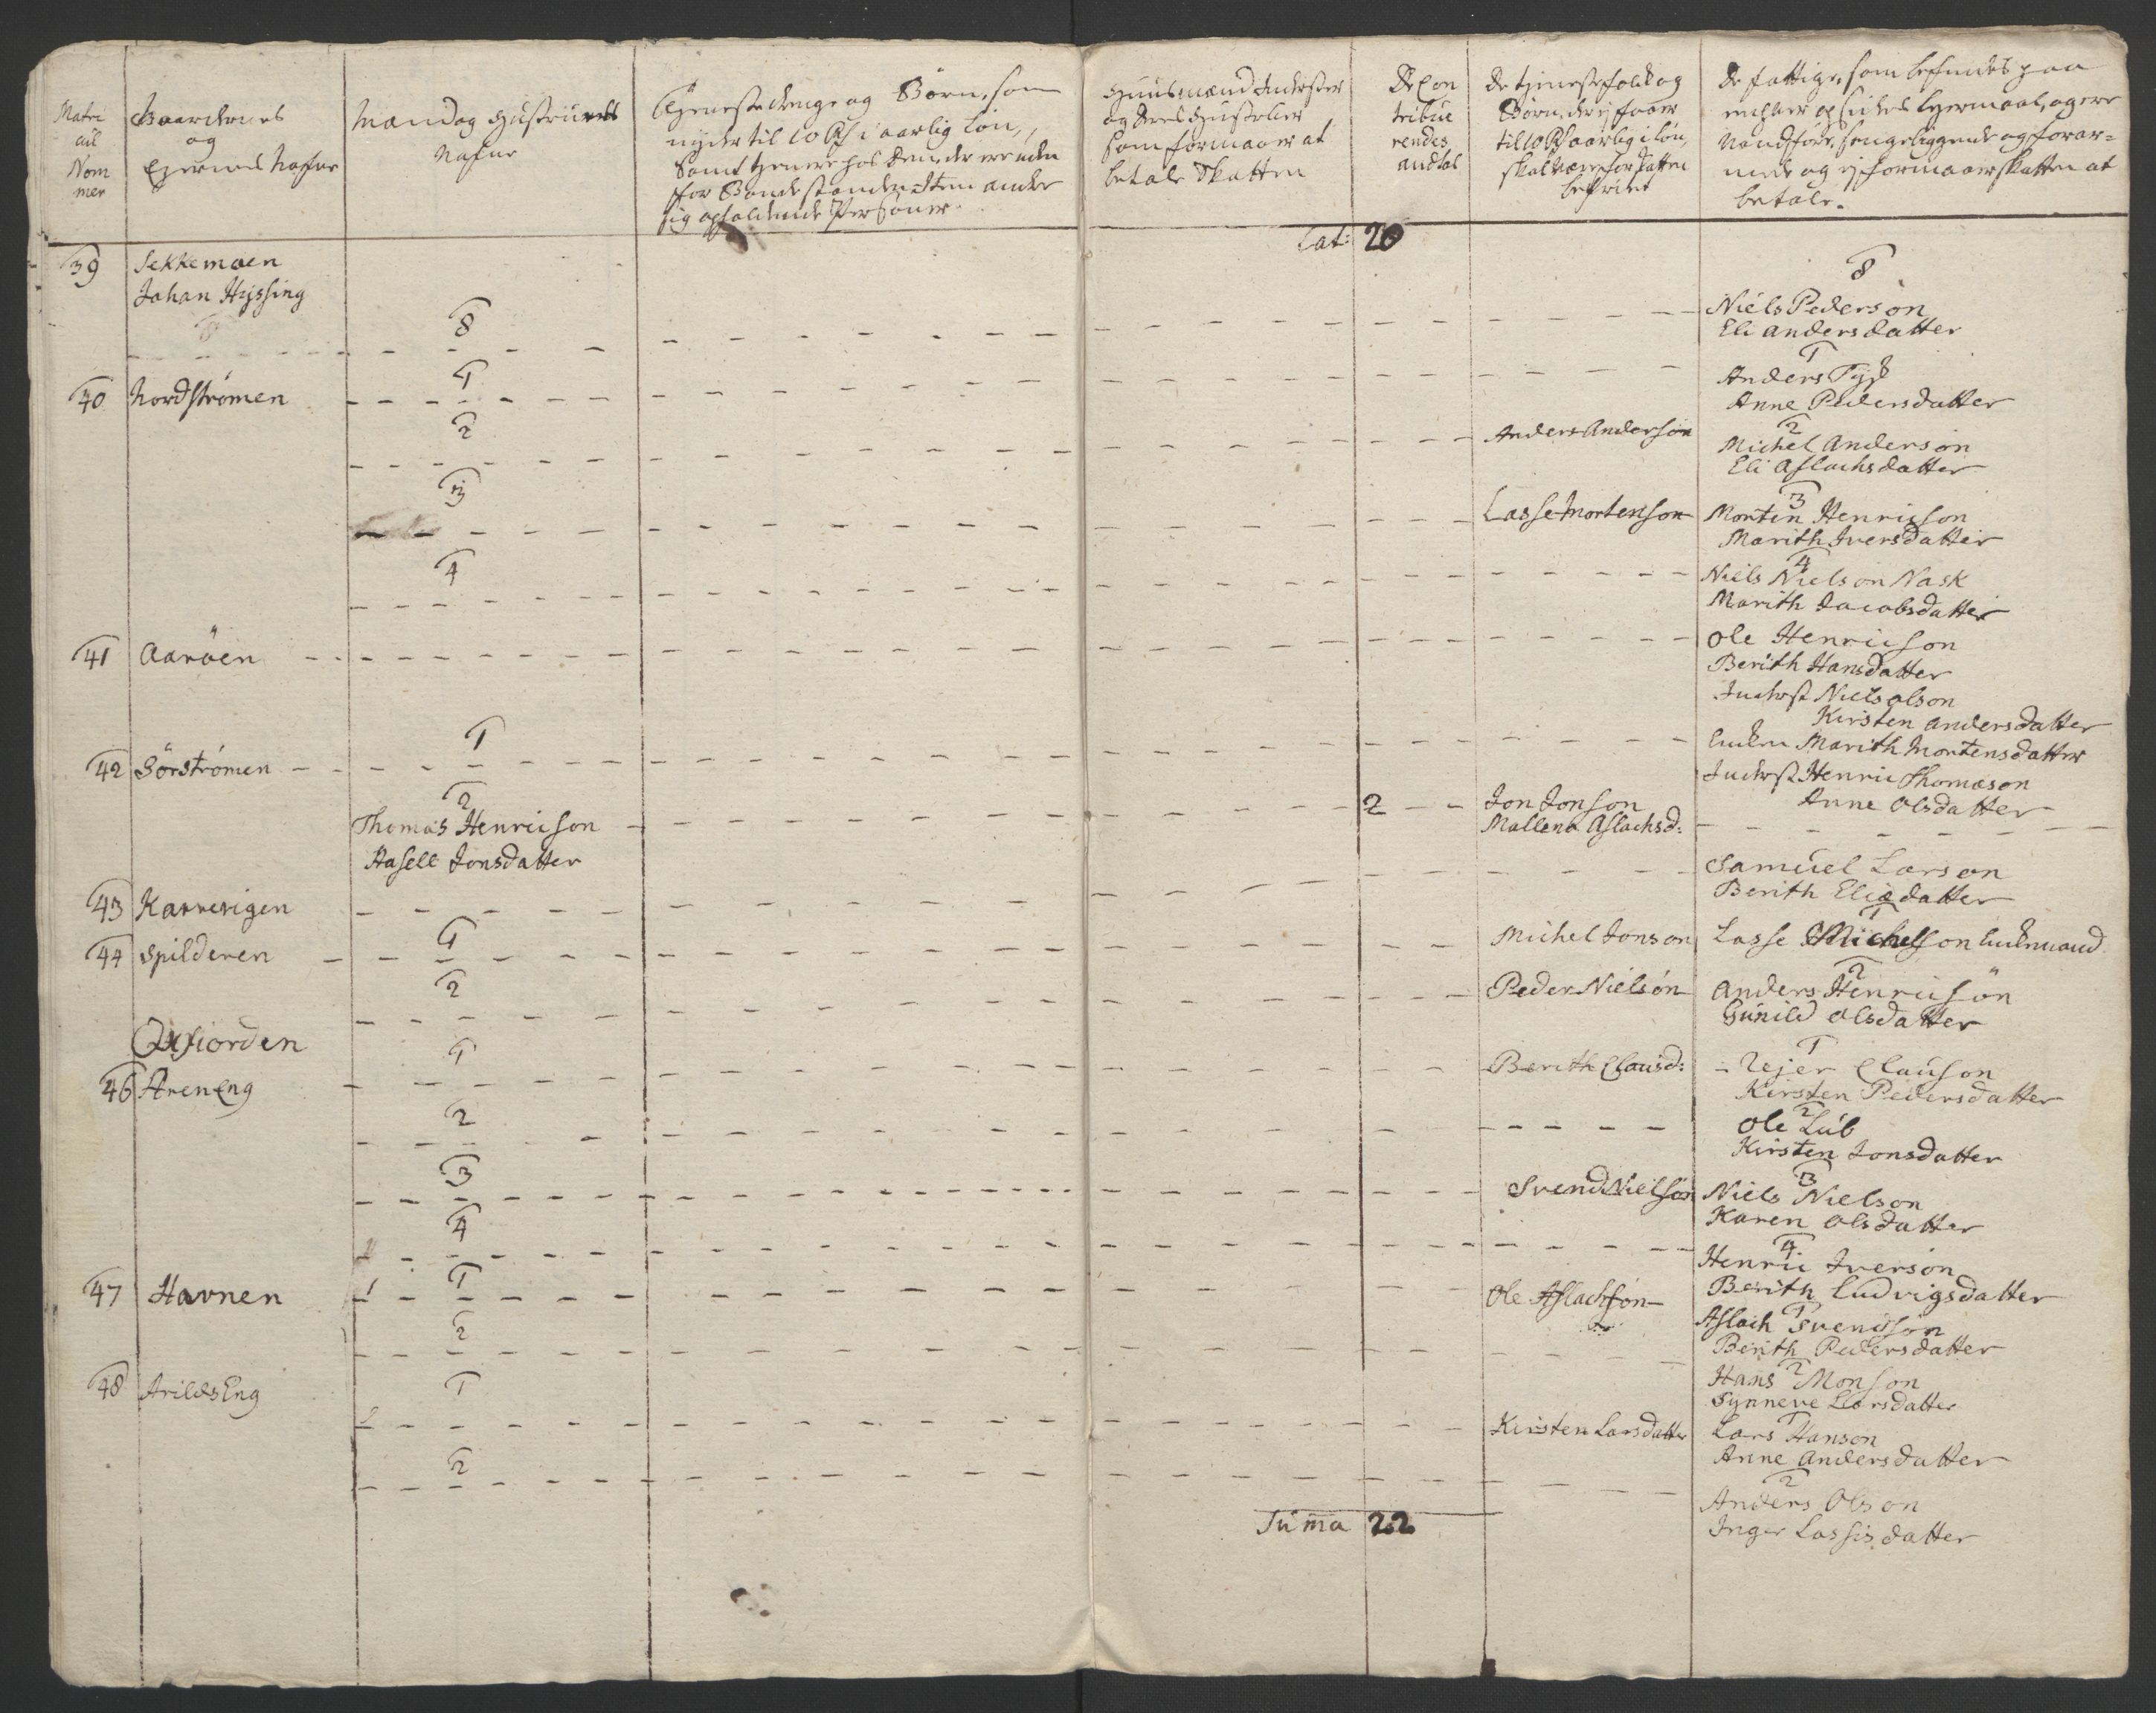 Matri
cul
Nom
mer
Gaardernes
og
Eyernes Nafne
Mand og Hustruers
Nafne
Tienestedrenge og Börn, som
nyder til 10 Rd i aarlig Lön,
samt tienere hos dem, der ere uden
for Bondestanden Item andre
sig opholdende Personer
Huusmænd Inderster
og deres Hustruer
som formaaer at
betale Skatten
De Con
tribue
rendes
andtal
De tieneste folk og
Börn, der ej faaer
til 10 Rd aarlig i Lön,
skal være for skatten
befriet
De fattige, som befindes paa
og ere
Vandföre, sengeliggende og forar=
mede og ej formaaer skatten at
betale.
Lat: 20
39 Sekkemoen
Johan Hysing
8
8
Niels Pederson
Eli Andersdatter
40 Nordströmen
1
1
Anders Tysk
Anne Pedersdatter
2
Anders Anderson
2
Michel Anderson
Eli Aslachsdatter
3
Lasse Mortenson
3
Morten Henricson
Marith Iversdatter
4
4
Niels Nielson Nask
Marith Jacobsdatter
41 Aaröen
Ole Henricson
Berith Hansdatter
Inderst Niels Olson
Kirsten Andersdatter
42 Sörströmen
1
Enken Marith Mortensdatter
Inderst Henric Thomason
Anne Olsdatter
2
Thomas Henricson
Hasell Jonsdatter
2
Jon Jonson
Mallena Aslachsd:
43 Karvevigen
Samuel Larson
Berith Eliædatter
44 Spilderen
1
Michel Jonson
1
Lasse Michelson Enkemand
2
Peder Nielsön
2
Anders Henricsön
Gunild Olsdatter
Oxfiorden
46 Areneng
1
Berith Clausd:
1
Rejer Clauson
Kirsten Pedersdatter
2
2
Ole Lub
Kirsten Jonsdatter
3
Svend Nielsön
3
Niels Nielson
Karen Olsdatter
4
4
Henric Iverson
Berith Ludvigsdatter
47 Havnen
1
Ole Aslachson
1
Aslach Svendsön
Berith Pedersdatter
2
2
Hans Monson
Synneve Larsdatter
48 Arilds Eng
1
Kirsten Larsdatter
1
Lars Hanson
Anne Andersdatter
2
2
Anders Olson
Inger Lassisdatter
Suma 22